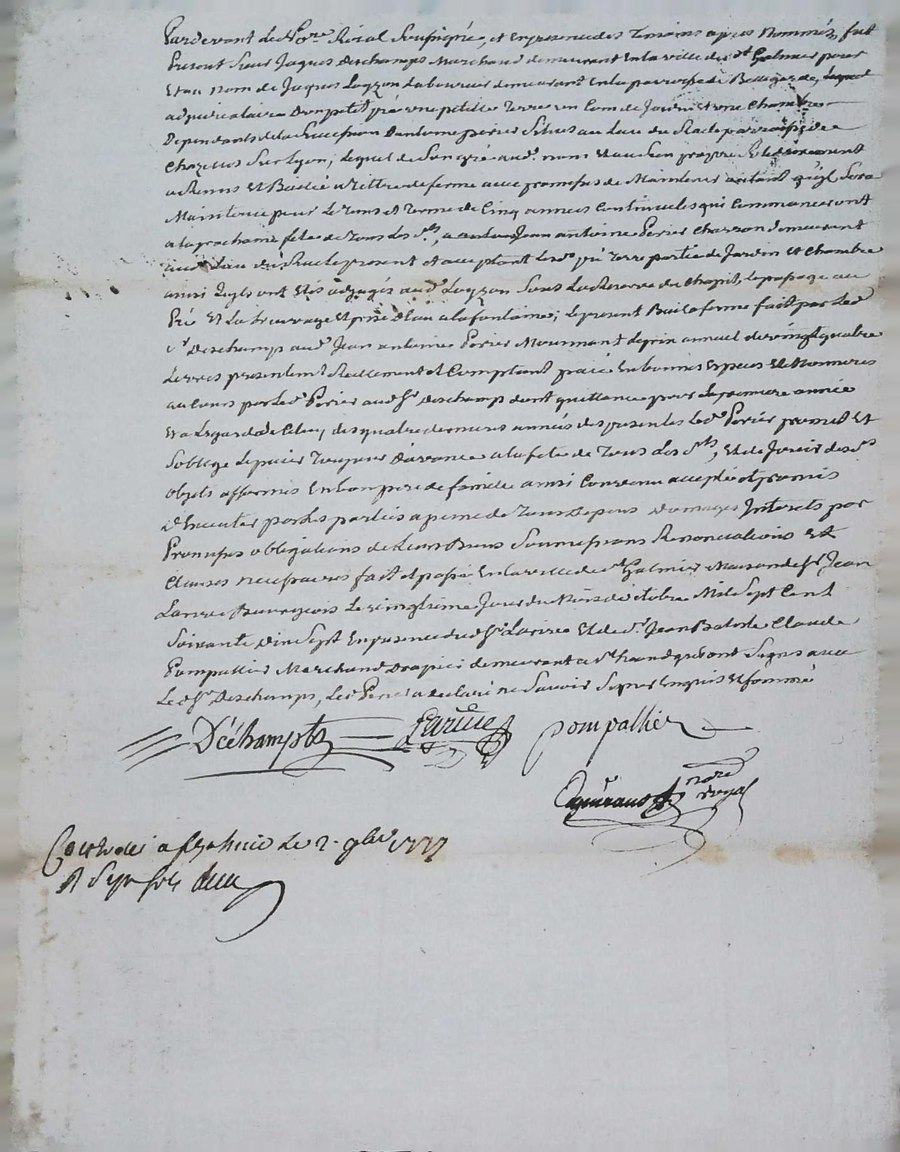 Pardevant le No.re Roial Soussigné, et en presence des Temoins apres Nommés, fut
Present Sieur Jaques Deschamps Marchand demeurant en la ville de s.t Galmier pour
et au nom de Jaques Loyzon Laboureur demeurant en la parroisse de Bellegarde, lequel
une petitte Terre un Coin de Jardin et une Chambre
Dependants de la Succession d'antoine perier Situés au Lieu du parroisse de
Chazelles Sur Lyon; lequel de Son gré aud. nom et au Sien propre
a Remis et Baillé a tittre de ferme avec promesses de Maintenir autant qu'il Sera
Maintenu pour le Tems et Terme de Cinq années Continueles qui Commanceront
a la prochaine fete de Tous les S.ts, a Jean antoine Perier Charron demeurant
aud. Lieu du present et acceptant led. Terre partie de Jardin et Chambre
ainsi qu'ils ont étés adjugés aud. Loyzon Sous la Reserve du Chenit, le passage au
Pré et l'abreuvage et prise d'eau a la fontaine; le present Bail a ferme fait par led.
s.r Deschamps aud. Jean antoine Perier Moiennant le prix annuel de vingt quatre
Livres presentem.t Reellement et Comptant paié en bonnes Especes et Monnoies
au Cours par led. Perier aud. S.r Deschamps dont quittance pour la premiere année
et a l'egard de Celuy des quatre dernieres années des presentes led. Perier promet et
s'oblige le paier Toujour d'avance a la fete de Tous les S.ts, et de Jouir des d.s
objets affermés en bon pere de famile ainsi Convenu accepté et promis
d'Executer par les parties a peine de Tous depens Domages Interets par
Promesses obligations de Leurs Biens Soumissions Renonciations et
Clauses necessaires fait et passé en la ville de s.t Galmier Maison de s.r Jean
Larive Bourgeois Le vingtième Jour du Mois d'octobre Mil Sept Cent
Soixante Dix Sept En presence dud. s.r Larive et de s.r Jean Batiste Claude
Pompallier Marchand Drapier demeurant a s.t qui ont Signés avec
Le d. S.r Deschamps, Led. Perier a declaré ne Savoir Signer Enquis et Sommé
Déchampts Larive pompallier
nore royal
Controlé a S.t Galmier le 2. 9bre 1777
R Sept sols